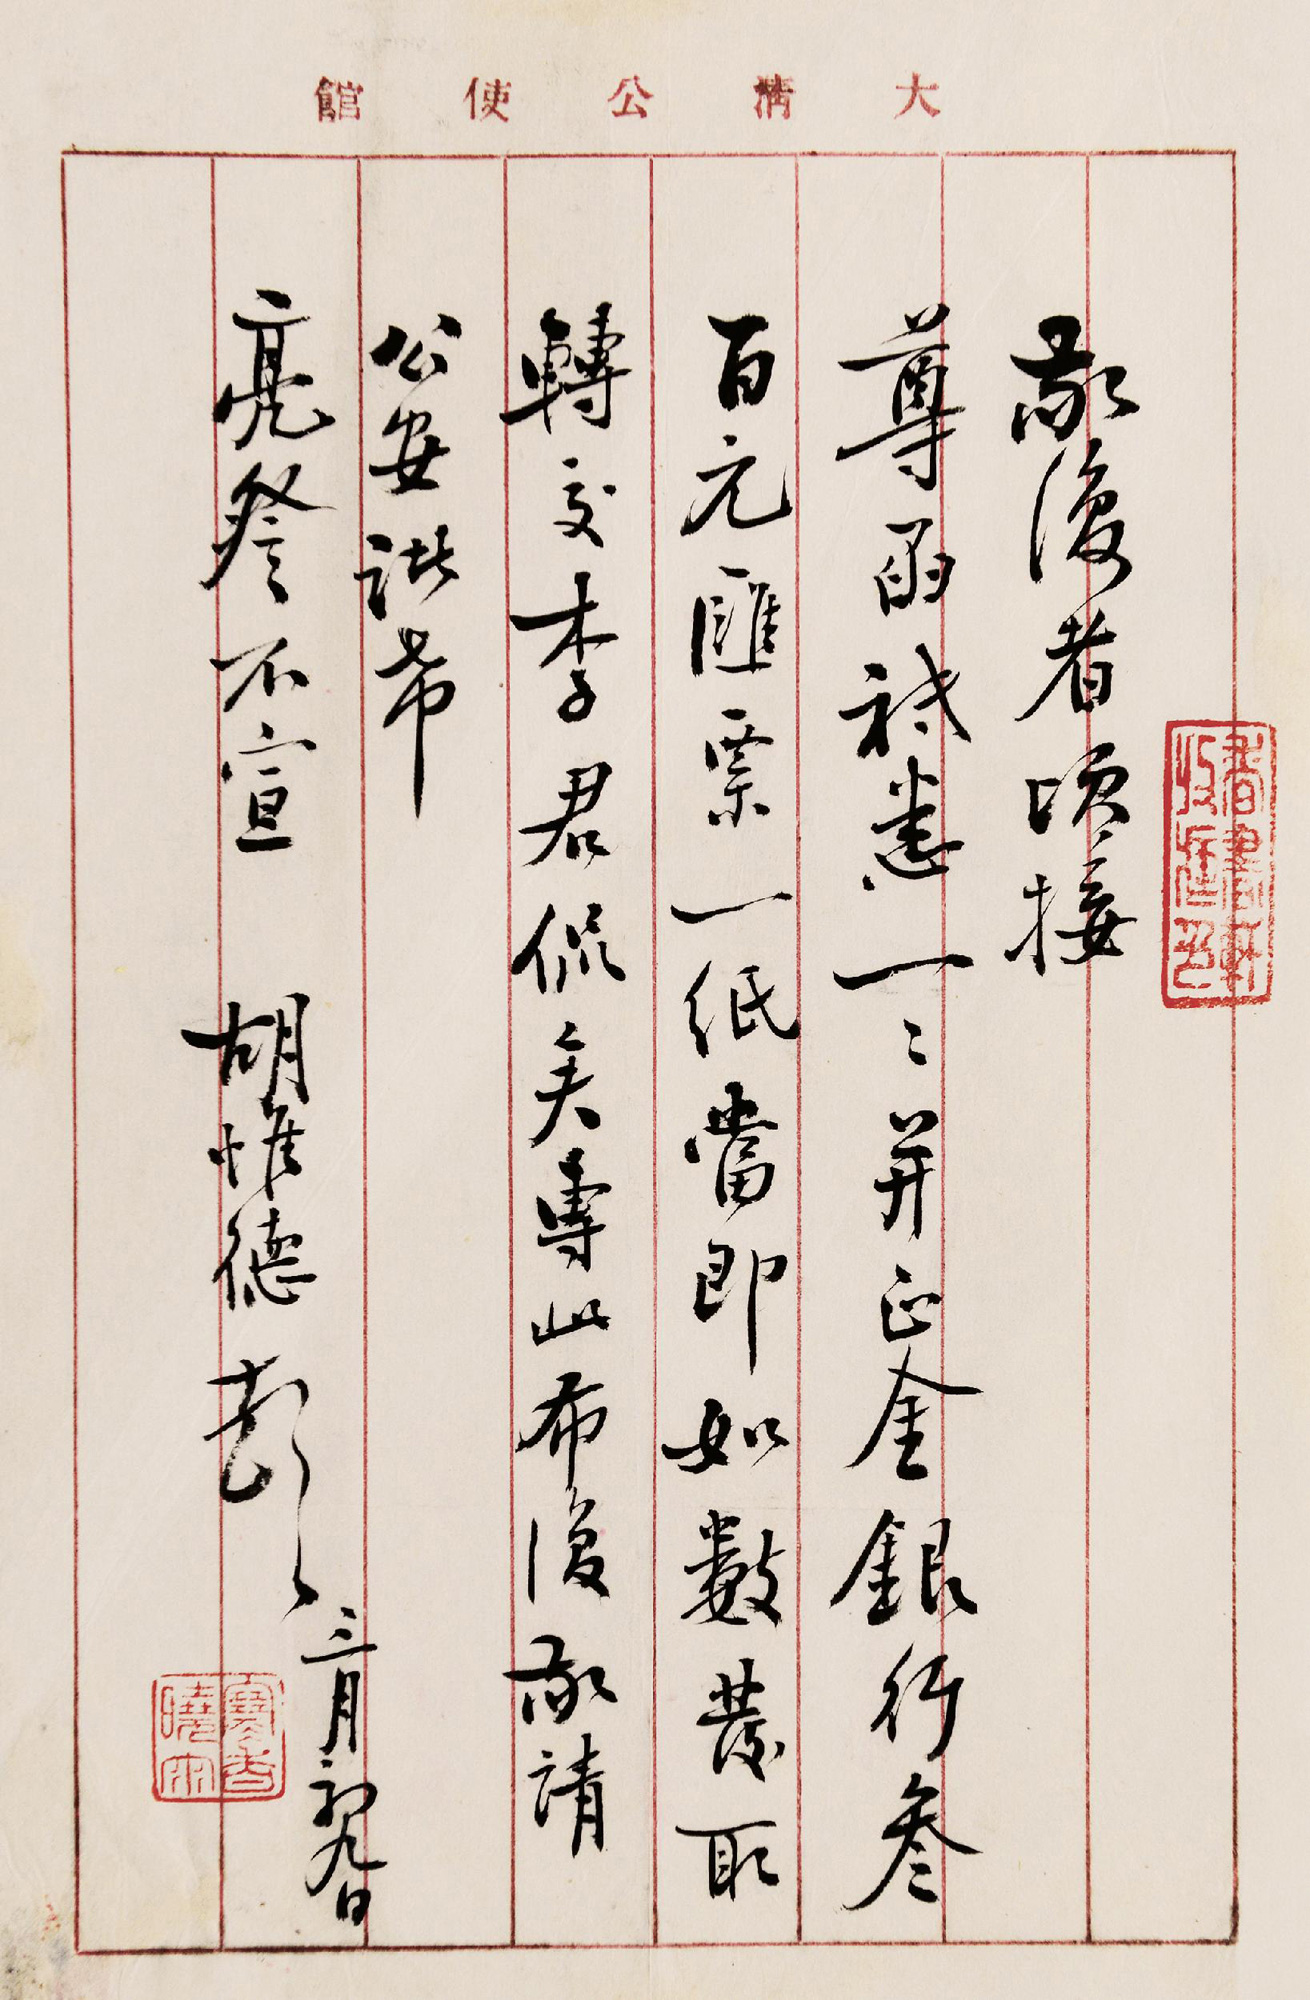 大清公使館
敬復者頃接
尊函祗悉一〻并正金銀行叄
百元匯票一紙當即如數發取
轉交李君侃矣專此布復敬請
公安諸希
亮詧不宣 胡惟德
三月初九日